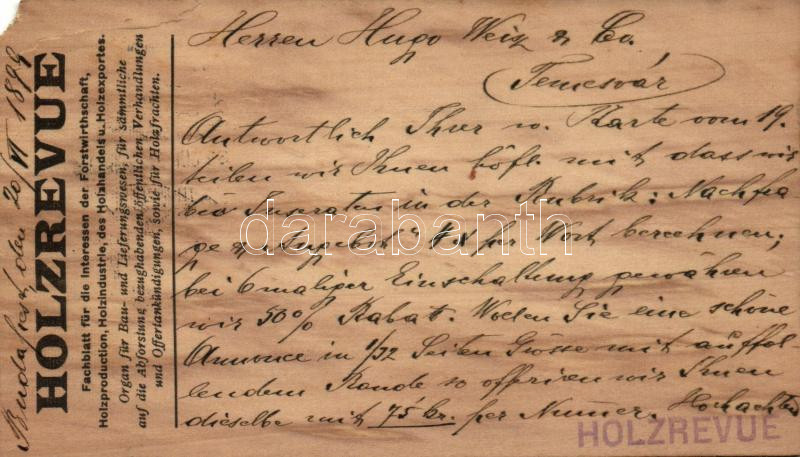 Budapest, den 20/VI 1899
HOLZREVUE
Fachblatt für die Interessen der Forstwirthschaft,
Holzproduction, Holzindustrie, des Holzhandels u. Holzexportes.
Organ für Bau- und Lieferungswesen, für sämmtliche
auf die Abforstung bezughabenden öffentlichen Verhandlungen
und Offertankündigungen, sowie für Holzfrachten.
Herren Hugo Weisz & Co.
Temesvár
Antwortlich Ihrer w. Karte vom 19.
teilen wir Ihnen höfl. mit dass wir
bei Inseraten in der Rubrik: Nachfra
ge & Angebot" 4 x per Wort berechnen;
bei 6 maliger Einschaltung gewähren
wir 50% Rabat. Wollen Sie eine schöne
Annonce in 1/32 Seiten Grösse mit auffal
lendem Rande so offerieren wir Ihnen
dieselbe mit 75 kr. per Numer. Hochachtd
HOLZREVUE
darabanth